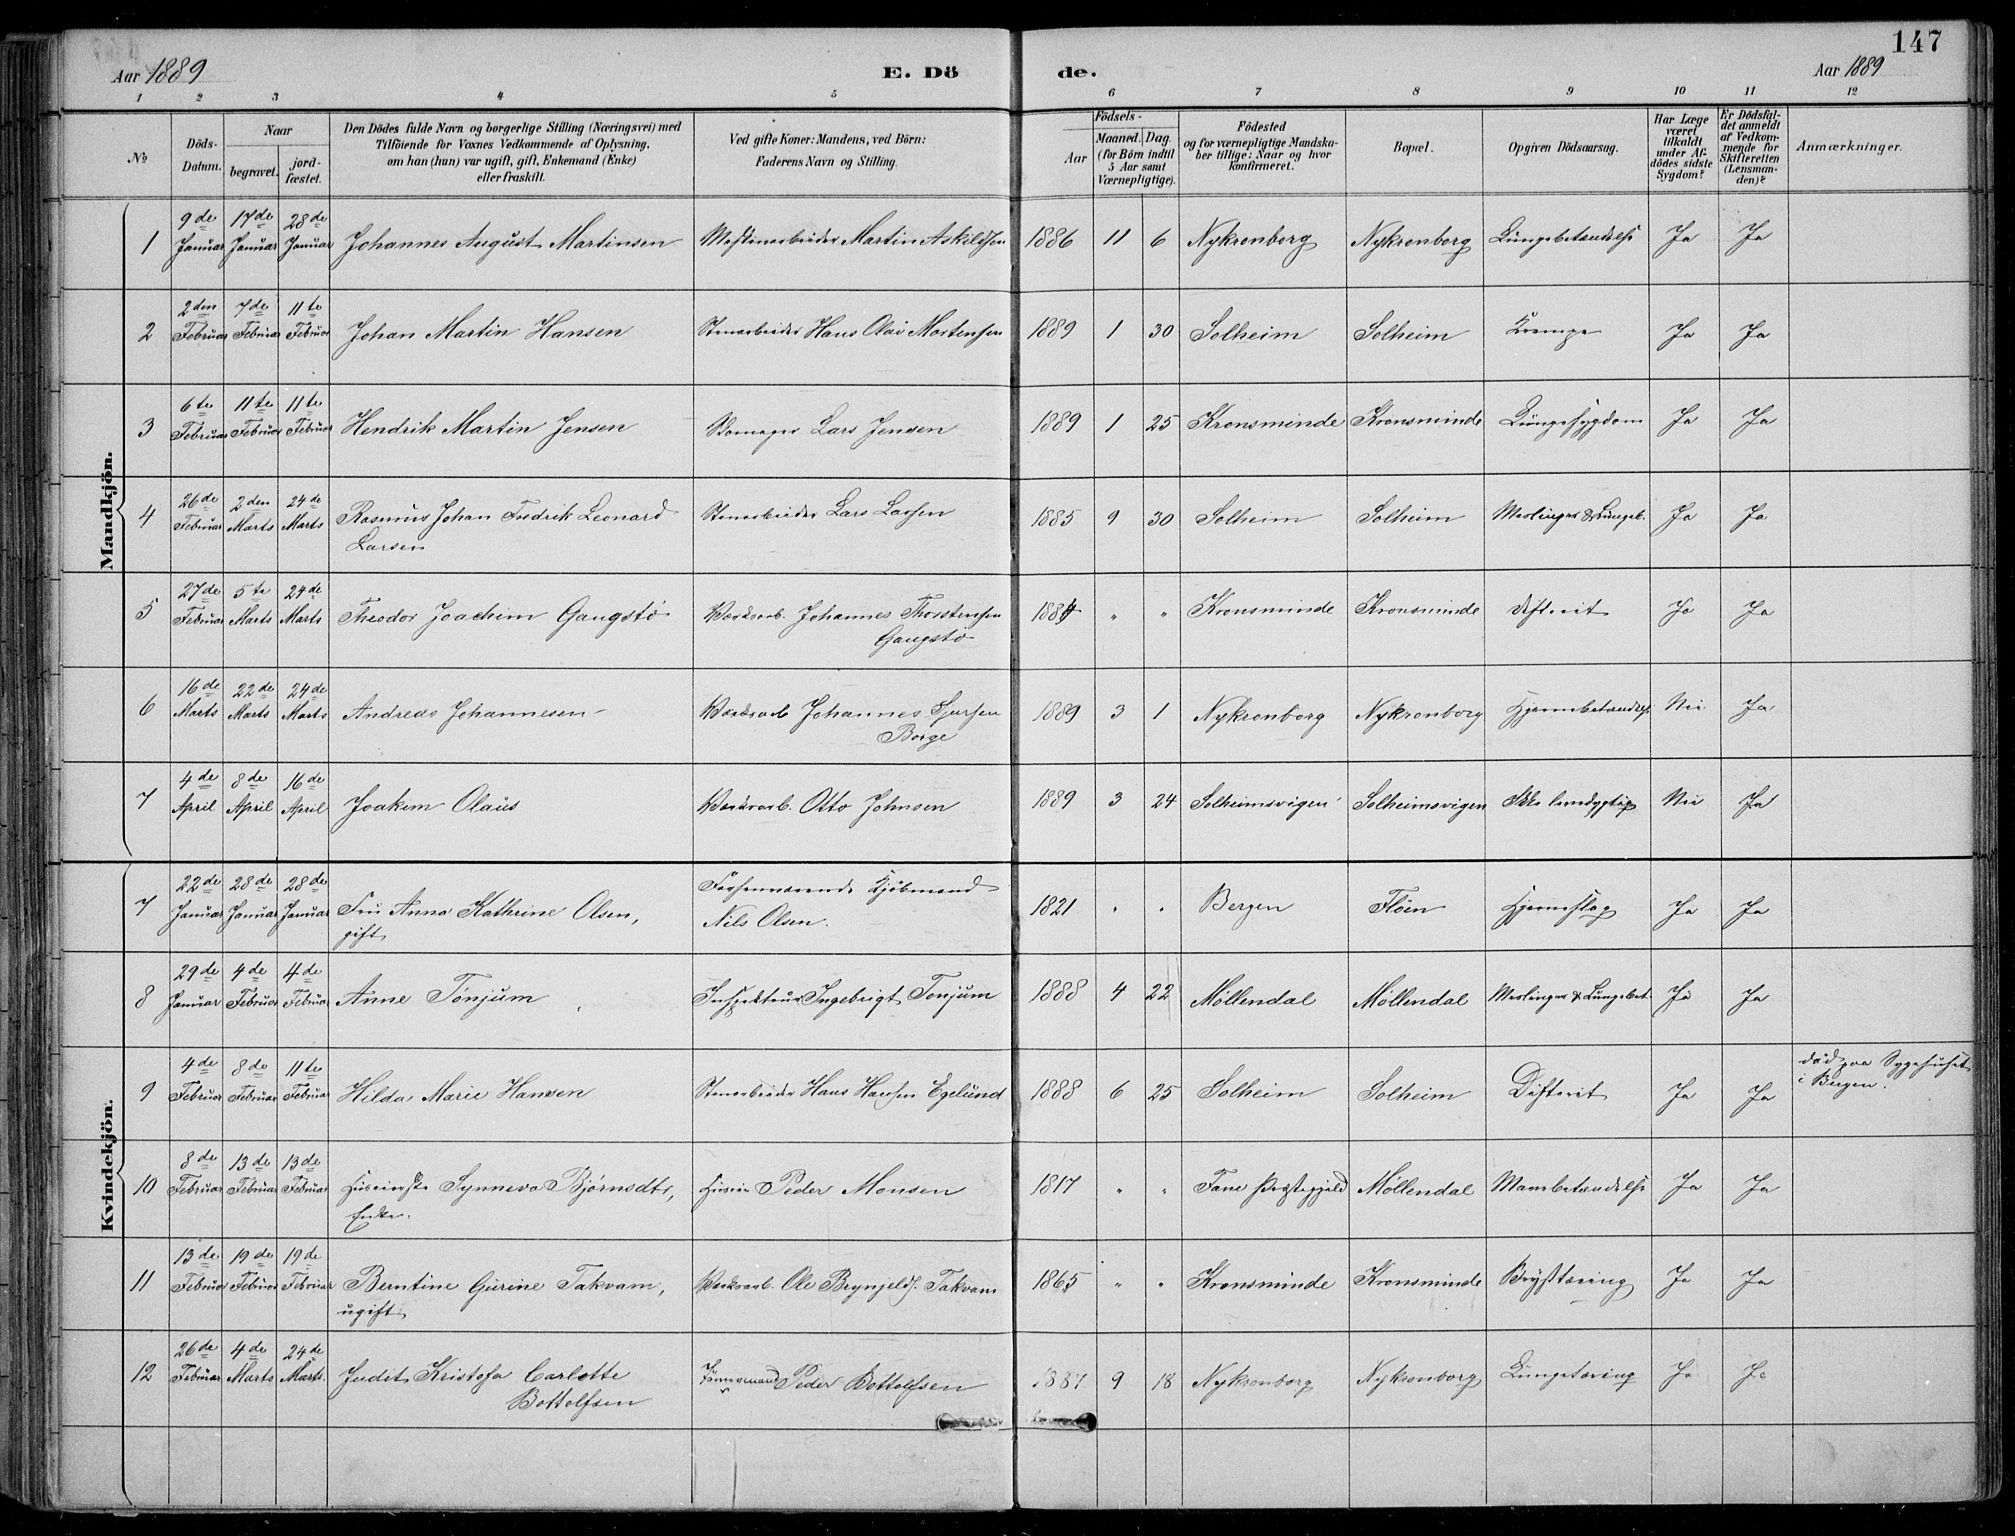 147
Aar 1889
E. Dö
de.
Aar 1889
1 2 3 4 5 6 7 8 9 10 11 12
No
Döds-Datum.
Naar
begravet.
jord-fæstet.
Den Dödes fulde Navn og borgerlige Stilling (Næringsvei) med
Tilföiende for Voxnes Vedkommende af Oplysning,
om han (hun) var ugift, gift, Enkemand (Enke)
eller fraskilt.
Ved gifte Koner: Mandens, ved Börn:
Faderens Navn og Stilling.
Födsels-
Aar
Maaned. Dag.
(for Börn indtil
5 Aar samt
Værnepligtige).
Födested
og for værnepligtige Mandska-
ber tillige: Naar og hvor
konfirmeret.
Bopæl.
Opgiven Dödsaarsag.
Har Læge
været
tilkaldt
under Af-
dödes sidste
Sygdom?
Er Dödsfal-
det anmeldt
af Vedkom-
mende for
Skifteretten
(Lensman-
den)?
Anmærkninger.
Mandkjön.
1 9de Januar 17de Januar 28de Januar Johannes August Martinsen Martin Askildsen 1886 11 6 Nykronborg Nykronborg Lungebetændelse Ja Ja
2 2den Februar 7de Februar 11te Februar Johan Martin Hansen Stenarbeider Hans Olai Mortensen 1889 1 30 Solheim Solheim Krampe Ja Ja
3 6te Februar 11te Februar 11te Februar Hendrik Martin Jensen Skomager Lars Jensen 1889 1 25 Kronsminde Kronsminde Lungesygdom Ja Ja
4 26de Februar 2den Marts 24de Marts Rasmus Johan Fredrik Leonard Stenarbeider Lars Larsen 1885 9 30 Solheim Solheim Meslinger & Lungeb. Ja Ja
Larsen
5 27de Februar 5te Marts 24de Marts Theodor Joachim Gangstö Værksarb. Johannes Thorstensen 1884 " " Kronsminde Kronsminde Difterit Ja Ja
Gangstö
6 16de Marts 22de Marts 24de Marts Andreas Johannesen Værksarb Johannes 1889 3 1 Nykronborg Nykronborg Hjernebetændelse Nei Ja
Borge
7 4de April 8de April 16de April Joakem Olaus Værksarb. Otto Johnsen 1889 3 24 Solheimsvigen Solheimsvigen Ikke levedygtig Nei Ja
Kvindekjön.
7 22de Januar 28de Januar 28de Januar Fru Anna Kathrine Olsen, Forhenværende Kjöbmand 1821 " " Bergen Flöen Hjerneslag Ja Ja
gift Nils Olsen.
8 29de Januar 4de Februar 4de Februar Anne Tönjum Inspekteur Ingebrigt Tonjum 1888 4 22 Möllendal Möllendal Meslinger & Lungebet. Ja Ja
9 4de Februar 8de Februar 11te Februar Hilda Marie Hansen Stenarbeider Hans Hansen Egelund 1888 6 25 Solheim Solheim Difterit Ja Ja död paa Sygehuset
i Bergen.
10 8de Februar 13de Februar 13de Februar Synneva Björnsdtr, Peder Monsen 1817 " " Fane Præstegjeld Möllendal Mavebetændelse Ja Ja
Enke.
11 13de Februar 19de Februar 19de Februar Berntine Gurine Takvam, Værksarb. Ole Brynjelds. Takvam 1865 " " Kronsminde Kronsminde Brysttæring Ja Ja
ugift
12 26de Februar 4de Marts 24de Marts. Judit Kristofa Carlotte Tömmermand Peder Bottolfsen 1887 9 18 Nykronborg Nykronborg Lungetæring Ja Ja
Bottolfsen